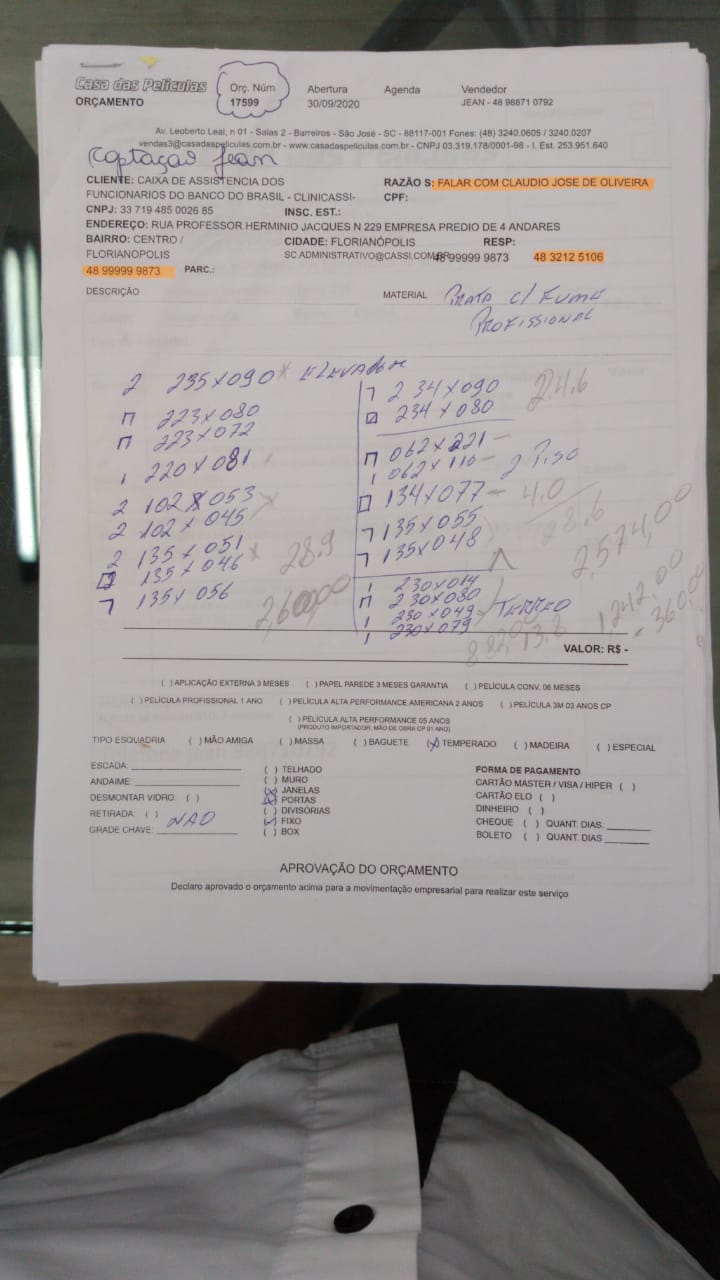 Casa das Películas
ORÇAMENTO
Orç. Núm
17599
Abertura
30/09/2020
Agenda
Vendedor
JEAN - 48 98871 0792
Av. Leoberto Leal, n 01 - Salas 2 - Barreiros - São José - SC - 88117-001 Fones: (48) 3240.0605 / 3240.0207
vendas3@casadaspeliculas.com.br - www.casadaspeliculas.com.br - CNPJ 03.319.178/0001-98 - I. Est. 253.951.640
Captação Jean
CLIENTE: CAIXA DE ASSISTENCIA DOS
FUNCIONARIOS DO BANCO DO BRASIL - CLINICASSI-
RAZÃO S: FALAR COM CLAUDIO JOSE DE OLIVEIRA
CPF:
CNPJ: 33 719 485 0026 85 INSC. EST.:
ENDEREÇO: RUA PROFESSOR HERMINIO JACQUES N 229 EMPRESA PREDIO DE 4 ANDARES
BAIRRO: CENTRO /
FLORIANOPOLIS
CIDADE: FLORIANÓPOLIS RESP:
SC.ADMINISTRATIVO@CASSI.COM.BR
48 99999 9873
48 3212 5106
48 99999 9873 PARC.:
DESCRIÇÃO
MATERIAL PRATA C/ FUMÊ
PROFISSIONAL
2 235X090 X ELEVADOR
223X080
223X072
1 220X081
2 102X053
2 102X045
2 135X051
135X046
135X056
28.9
2,600,00
234X090
234X080
24.6
062X221
1 062X110
2 PISO
134X077 4.0
135X055
135X048
28.6
2,574,00
1 230X014
230X080
1 230X049 TERREO
1 230X079
13.8
1,242.00
360,00
VALOR: R$ -
( ) APLICAÇÃO EXTERNA 3 MESES ( ) PAPEL PAREDE 3 MESES GARANTIA ( ) PELÍCULA CONV. 06 MESES
( ) PELÍCULA PROFISSIONAL 1 ANO ( ) PELÍCULA ALTA PERFORMANCE AMERICANA 2 ANOS ( ) PELÍCULA 3M 03 ANOS CP
( ) PELÍCULA ALTA PERFORMANCE 05 ANOS
(PRODUTO IMPORTADOR, MÃO DE OBRA CP 01 ANO)
TIPO ESQUADRIA ( ) MÃO AMIGA ( ) MASSA ( ) BAGUETE (X) TEMPERADO ( ) MADEIRA ( ) ESPECIAL
ESCADA:
ANDAIME:
DESMONTAR VIDRO: ( )
RETIRADA: ( ) NAO
GRADE CHAVE:
( ) TELHADO
( ) MURO
(X) JANELAS
(X) PORTAS
( ) DIVISÓRIAS
(X) FIXO
( ) BOX
FORMA DE PAGAMENTO
CARTÃO MASTER / VISA / HIPER ( )
CARTÃO ELO ( )
DINHEIRO ( )
CHEQUE ( ) QUANT. DIAS:
BOLETO ( ) QUANT. DIAS
APROVAÇÃO DO ORÇAMENTO
Declaro aprovado o orçamento acima para a movimentação empresarial para realizar este serviço